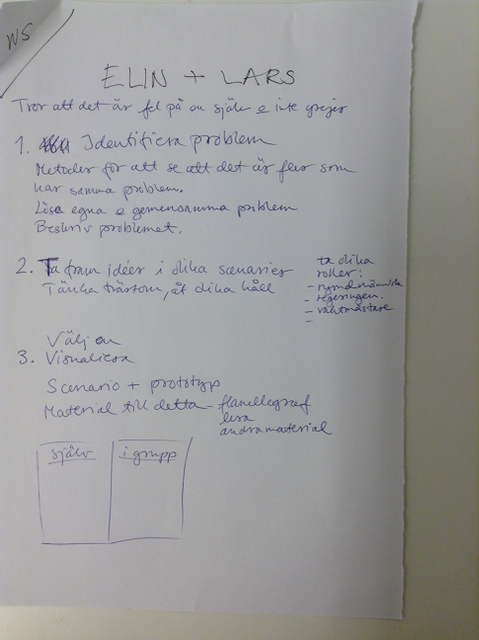 WS
ELIN + LARS
Tror att det är fel på en själv o inte grejer
1. Identifiera problem
Metoder för att se att det är fler som
har samma problem.
Lösa egna o gemensamma problem
Beskriv problemet.
2. Ta fram idéer i olika scenarier
Tänka tvärtom, åt olika håll
ta olika
roller:
- rymdmänniska
- regeringen.
- vaktmästare
-
Välj en
3. Visualisera
Scenario + prototyp
Material till detta - flanellegraf
lera
andra material
själv
i grupp